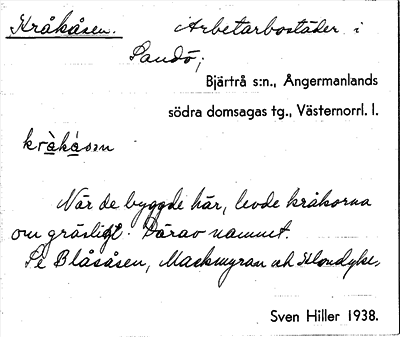 Kråkåsen. Arbetarbostäder i
Sandö;
Bjärtrå s:n., Ångermanlands
södra domsagas tg., Västernorrl. l.
kråkåsn
När de byggde här, levde kråkorna
om gräsligt. Därav namnet.
Se Blåsåsen, Mackmyran och Klondyke.
Sven Hiller 1938.